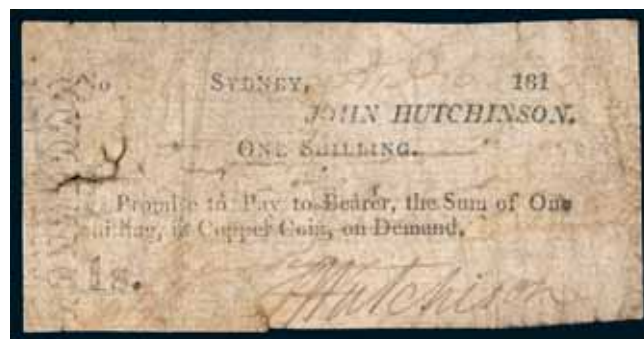 No SYDNEY, 181
JOHN HUTCHINSON.
ONE SHILLING.
Promise to Pay to Bearer, the Sum of One
Shilling, in Copper Coin, on Demand.
1s.
Hutchison